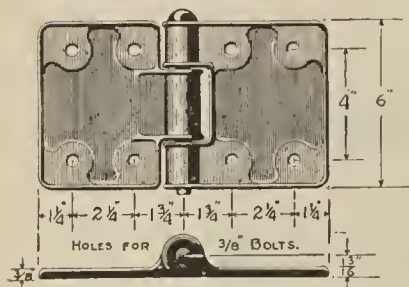 4" 6"
1¼" 2¼" 1¾" 1¾" 2¼" 1¼"
HOLES FOR 3/8" BOLTS.